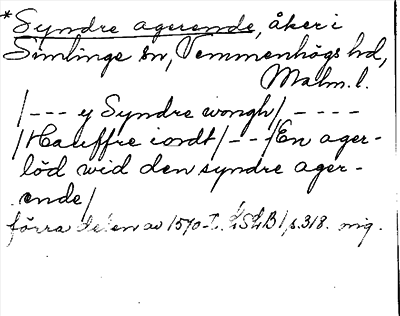 *Syndre agerende, åker i
Simlinge sn, Vemmenhögs hd,
Malm. l.
/--- y Syndre wongh/ ----
/Hauffre iordt/---/En ager-
löd wid den syndre ager-
ende/
förra delen av 1570-t. LSLB 1, s. 318. mig.